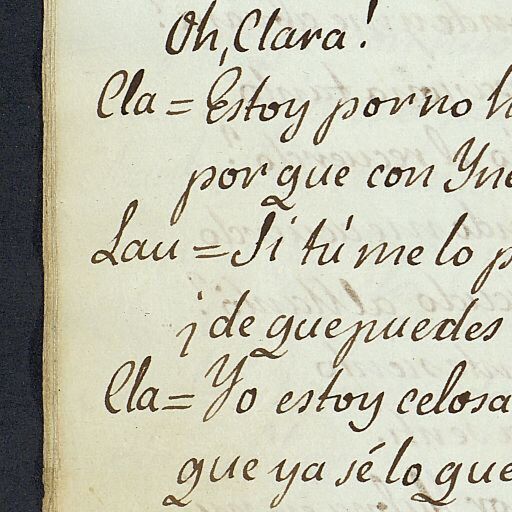 Oh, Clara!
Cla = Estoy por no h
por que con Yne
Lau = Si tú me lo p
¡de que puedes
Cla = Yo estoy celosa
que ya sé lo que